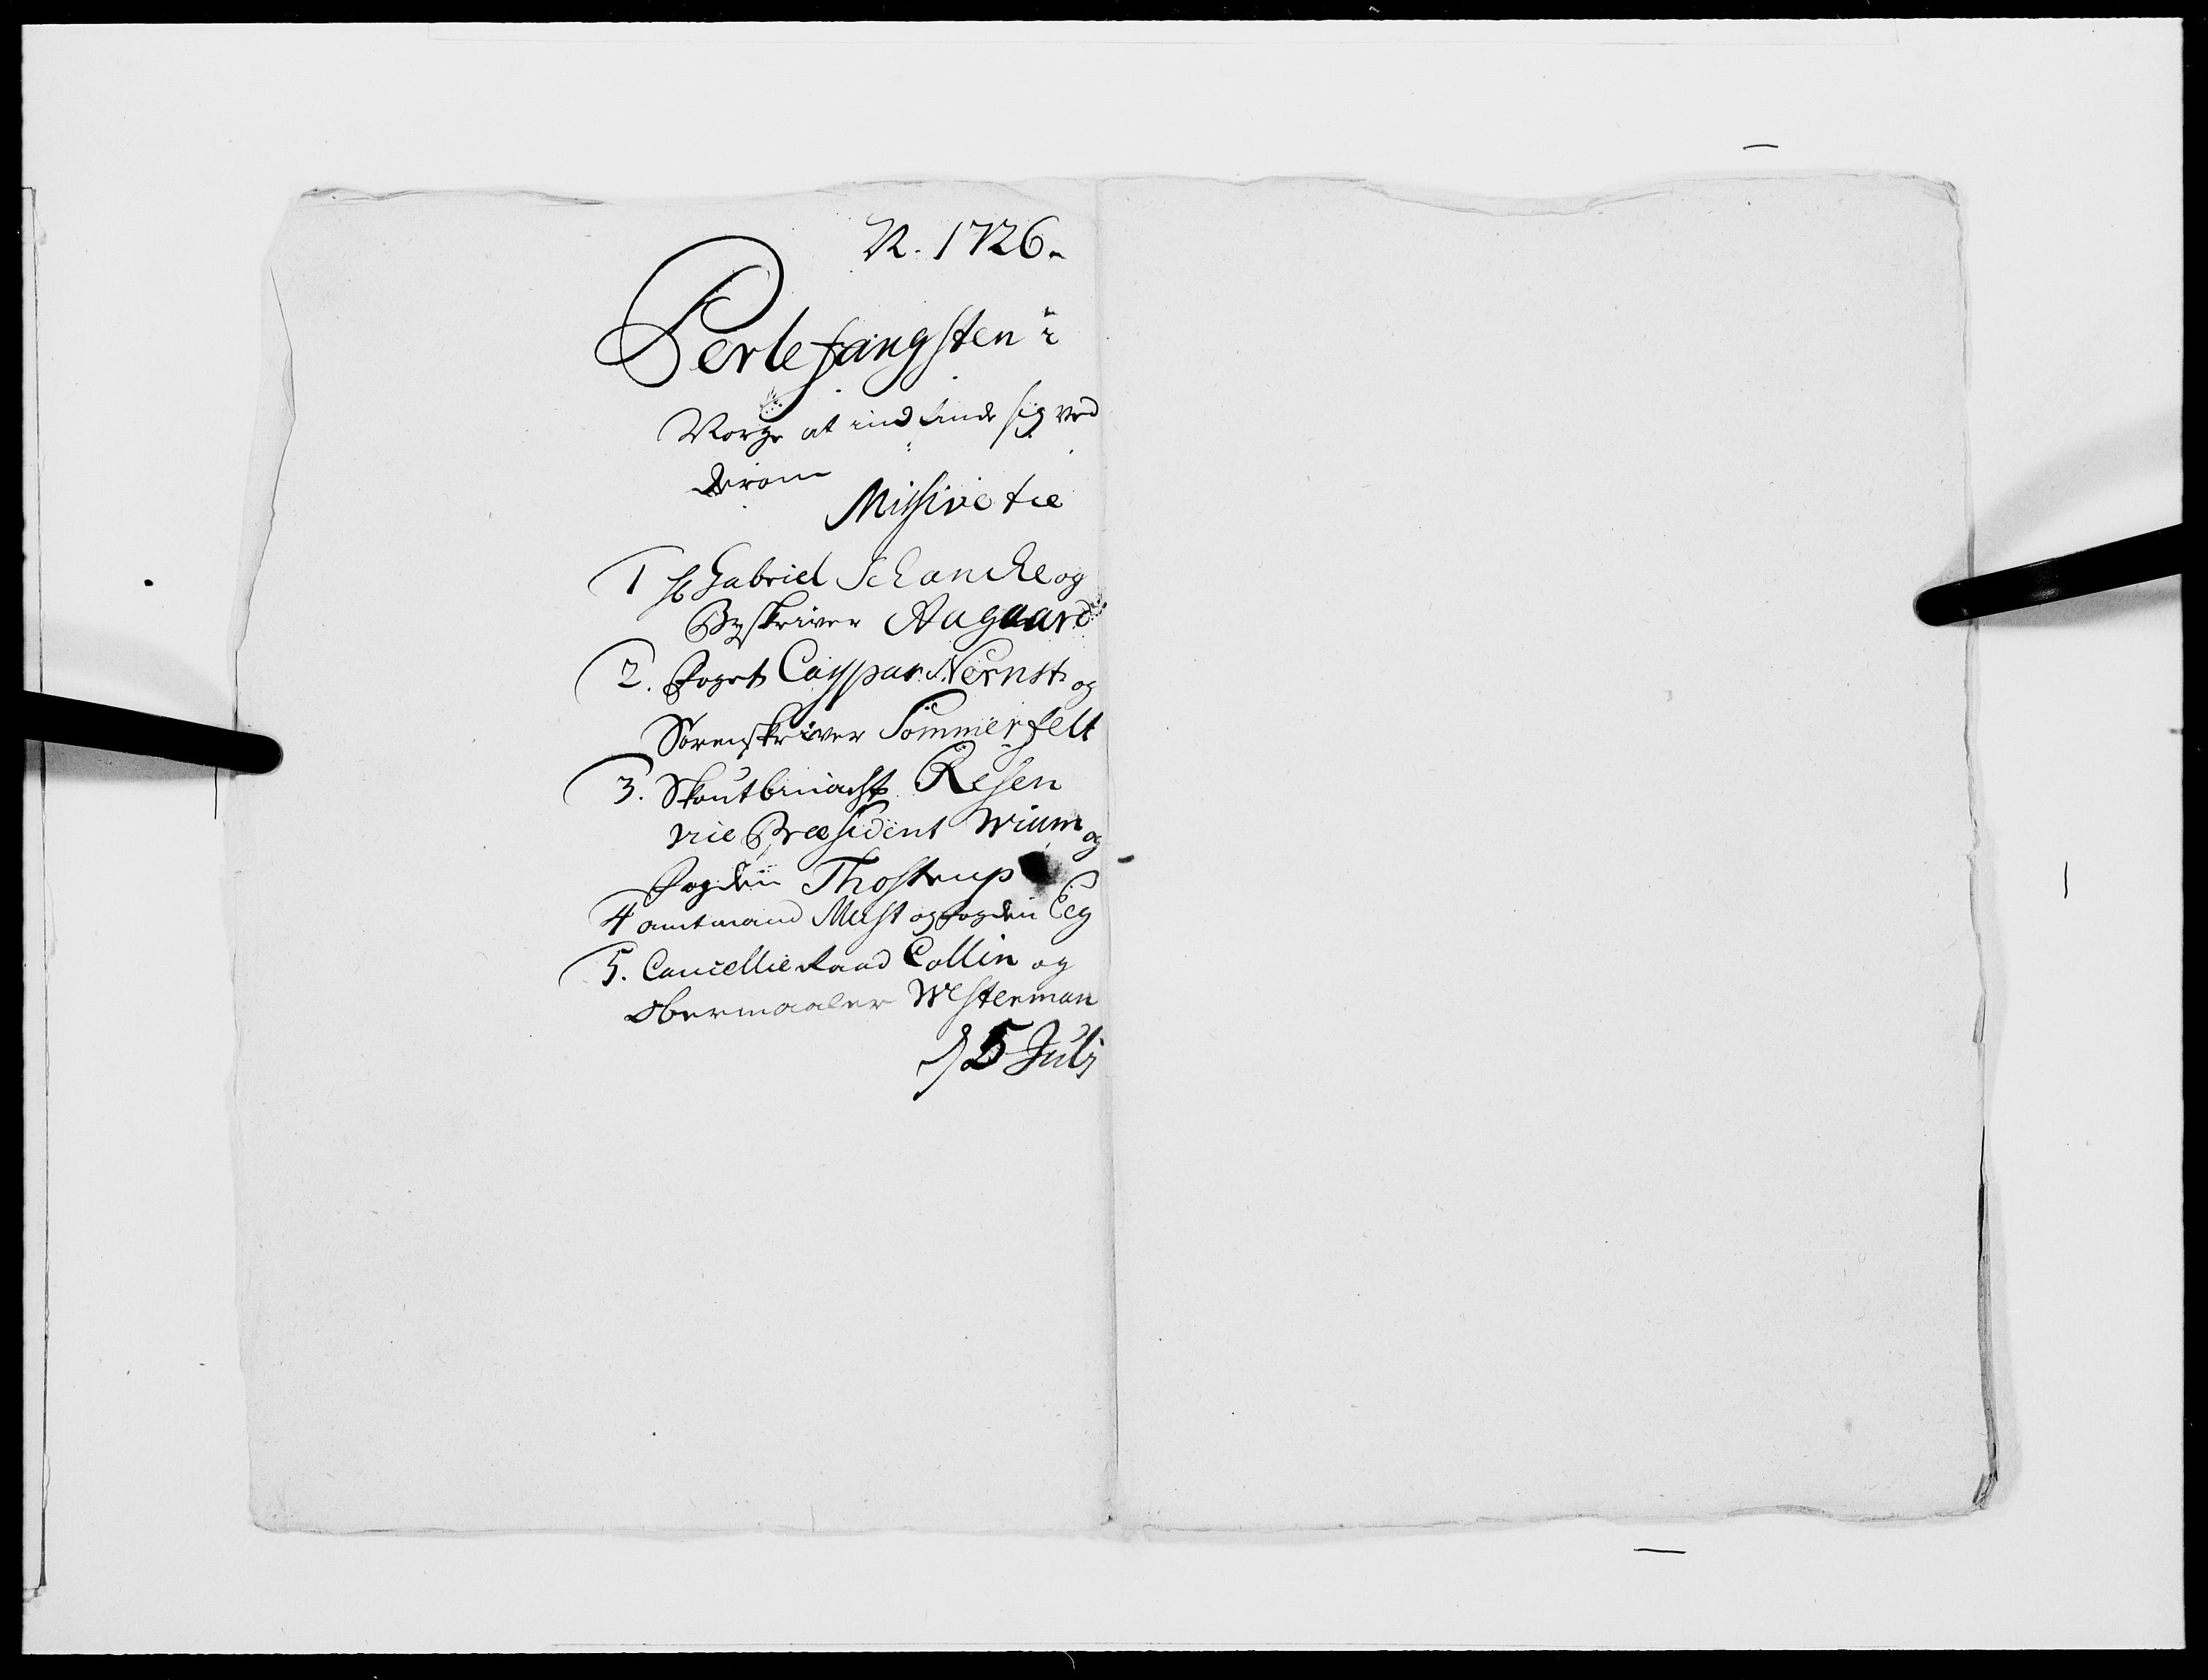 N. 1726.
Perlefangsten i
Norge at indfinde sig ved
derom
Missive til
1 Hr Gabriel Schancke og
Byskriver Aagaard
2. Foget Casspar Nernst og
Sorenskriver Sommerfelt
3. Skoutbinacht Resen
vice Præsident Wium og
Fogden Thostrup
4 amtmand Must og fogden Eeg
5. Cancellie Raad Collin og
Obermaaler Westerman
d 5 Julj